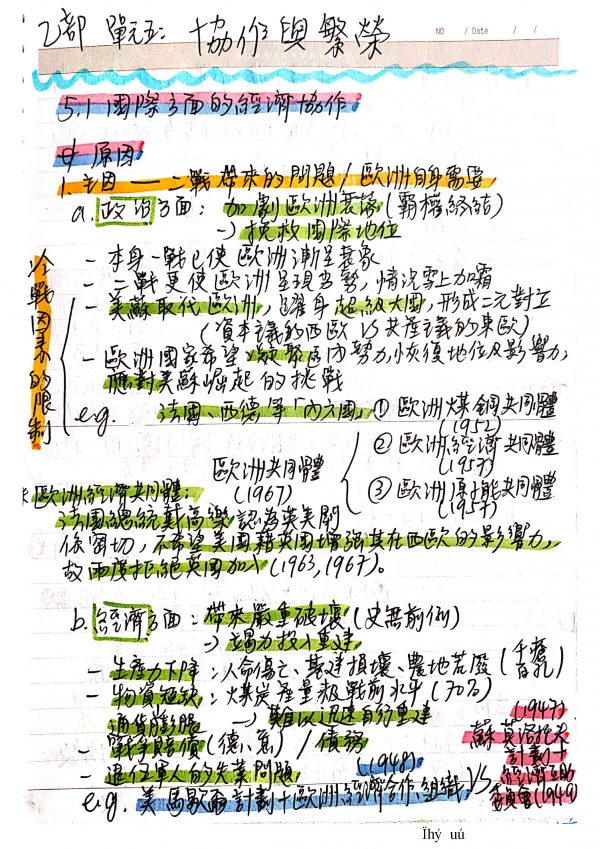 乙部 單元五： 協作與繁榮
NO / Date / /
5.1 國際方面的經濟協作
原因
1. 主因 — 二戰帶來的問題 / 歐洲自身需要
a. 政治方面： 加劇歐洲衰落 (霸權終結)
→ 挽救國際地位
冷戰因素的限制
- 本身一戰已使歐洲漸呈衰象
- 二戰更使歐洲呈現劣勢，情況雪上加霜
- 美蘇取代歐洲，躍身超級大國，形成二元對立
(資本主義的西歐 VS 共產主義的東歐)
- 歐洲國家希望凝聚區內勢力，恢復地位及影響力，
應對美蘇崛起的挑戰
e.g. 法國、西德等「內六國」 ① 歐洲煤鋼共同體
(1952)
② 歐洲經濟共同體
(1957)
歐洲共同體
(1967)
③ 歐洲原子能共同體
(1957)
* 歐洲經濟共同體：
法國總統戴高樂認為英美關
係密切，不希望美國藉英國增強其在西歐的影響力，
故兩度拒絕英國加入 (1963, 1967)。
b. 經濟方面： 帶來嚴重破壞 (史無前例)
→ 竭力投入重建
- 生產力下降：人命傷亡、基建損壞、農地荒廢 (千瘡百孔)
- 物資短缺：煤炭產量 戰前水平 (70%)
通貨膨脹 → 難以迅速自行重建
- 戰爭賠償 (德、意) / 債務
- 退伍軍人的失業問題
(1948)
e.g. 美 馬歇爾計劃 + 歐洲經濟合作組織 VS
(1947)
蘇 莫洛托夫
計劃 +
經濟互助
委員會 (1949)